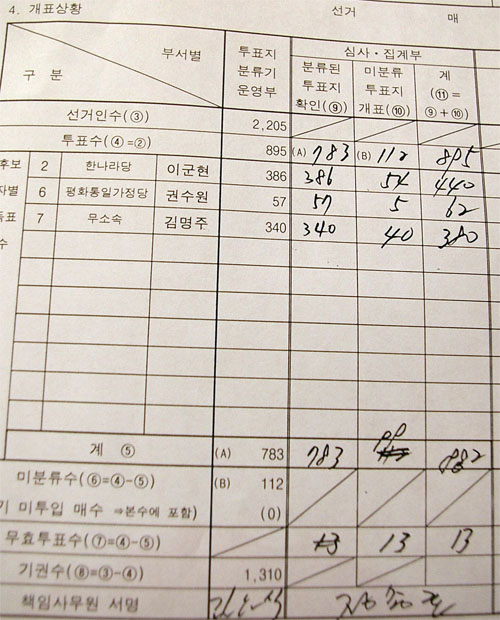 4. 개표상황 선거 매
부서별 구 분 투표지 분류기 운영부 심사·집계부
분류된 투표지 확인(⑨) 미분류 투표지 개표(⑩) 계 (⑪= ⑨+⑩)
선거인수(③) 2,205
투표수(④=②) 895 (A) 783 (B) 112 895
후보 2 한나라당 이군현 386 386 54 440
자별 6 평화통일가정당 권수원 57 57 5 62
득표 7 무소속 김명주 340 340 40 380
수
계 ⑤ (A) 783 783 99 882
미분류수(⑥=④-⑤) (B) 112
기 미투입 매수 ⇒본수에 포함) (0)
무효투표수(⑦=④-⑤) 13 13 13
기권수(⑧=③-④) 1,310
책임사무원 서명